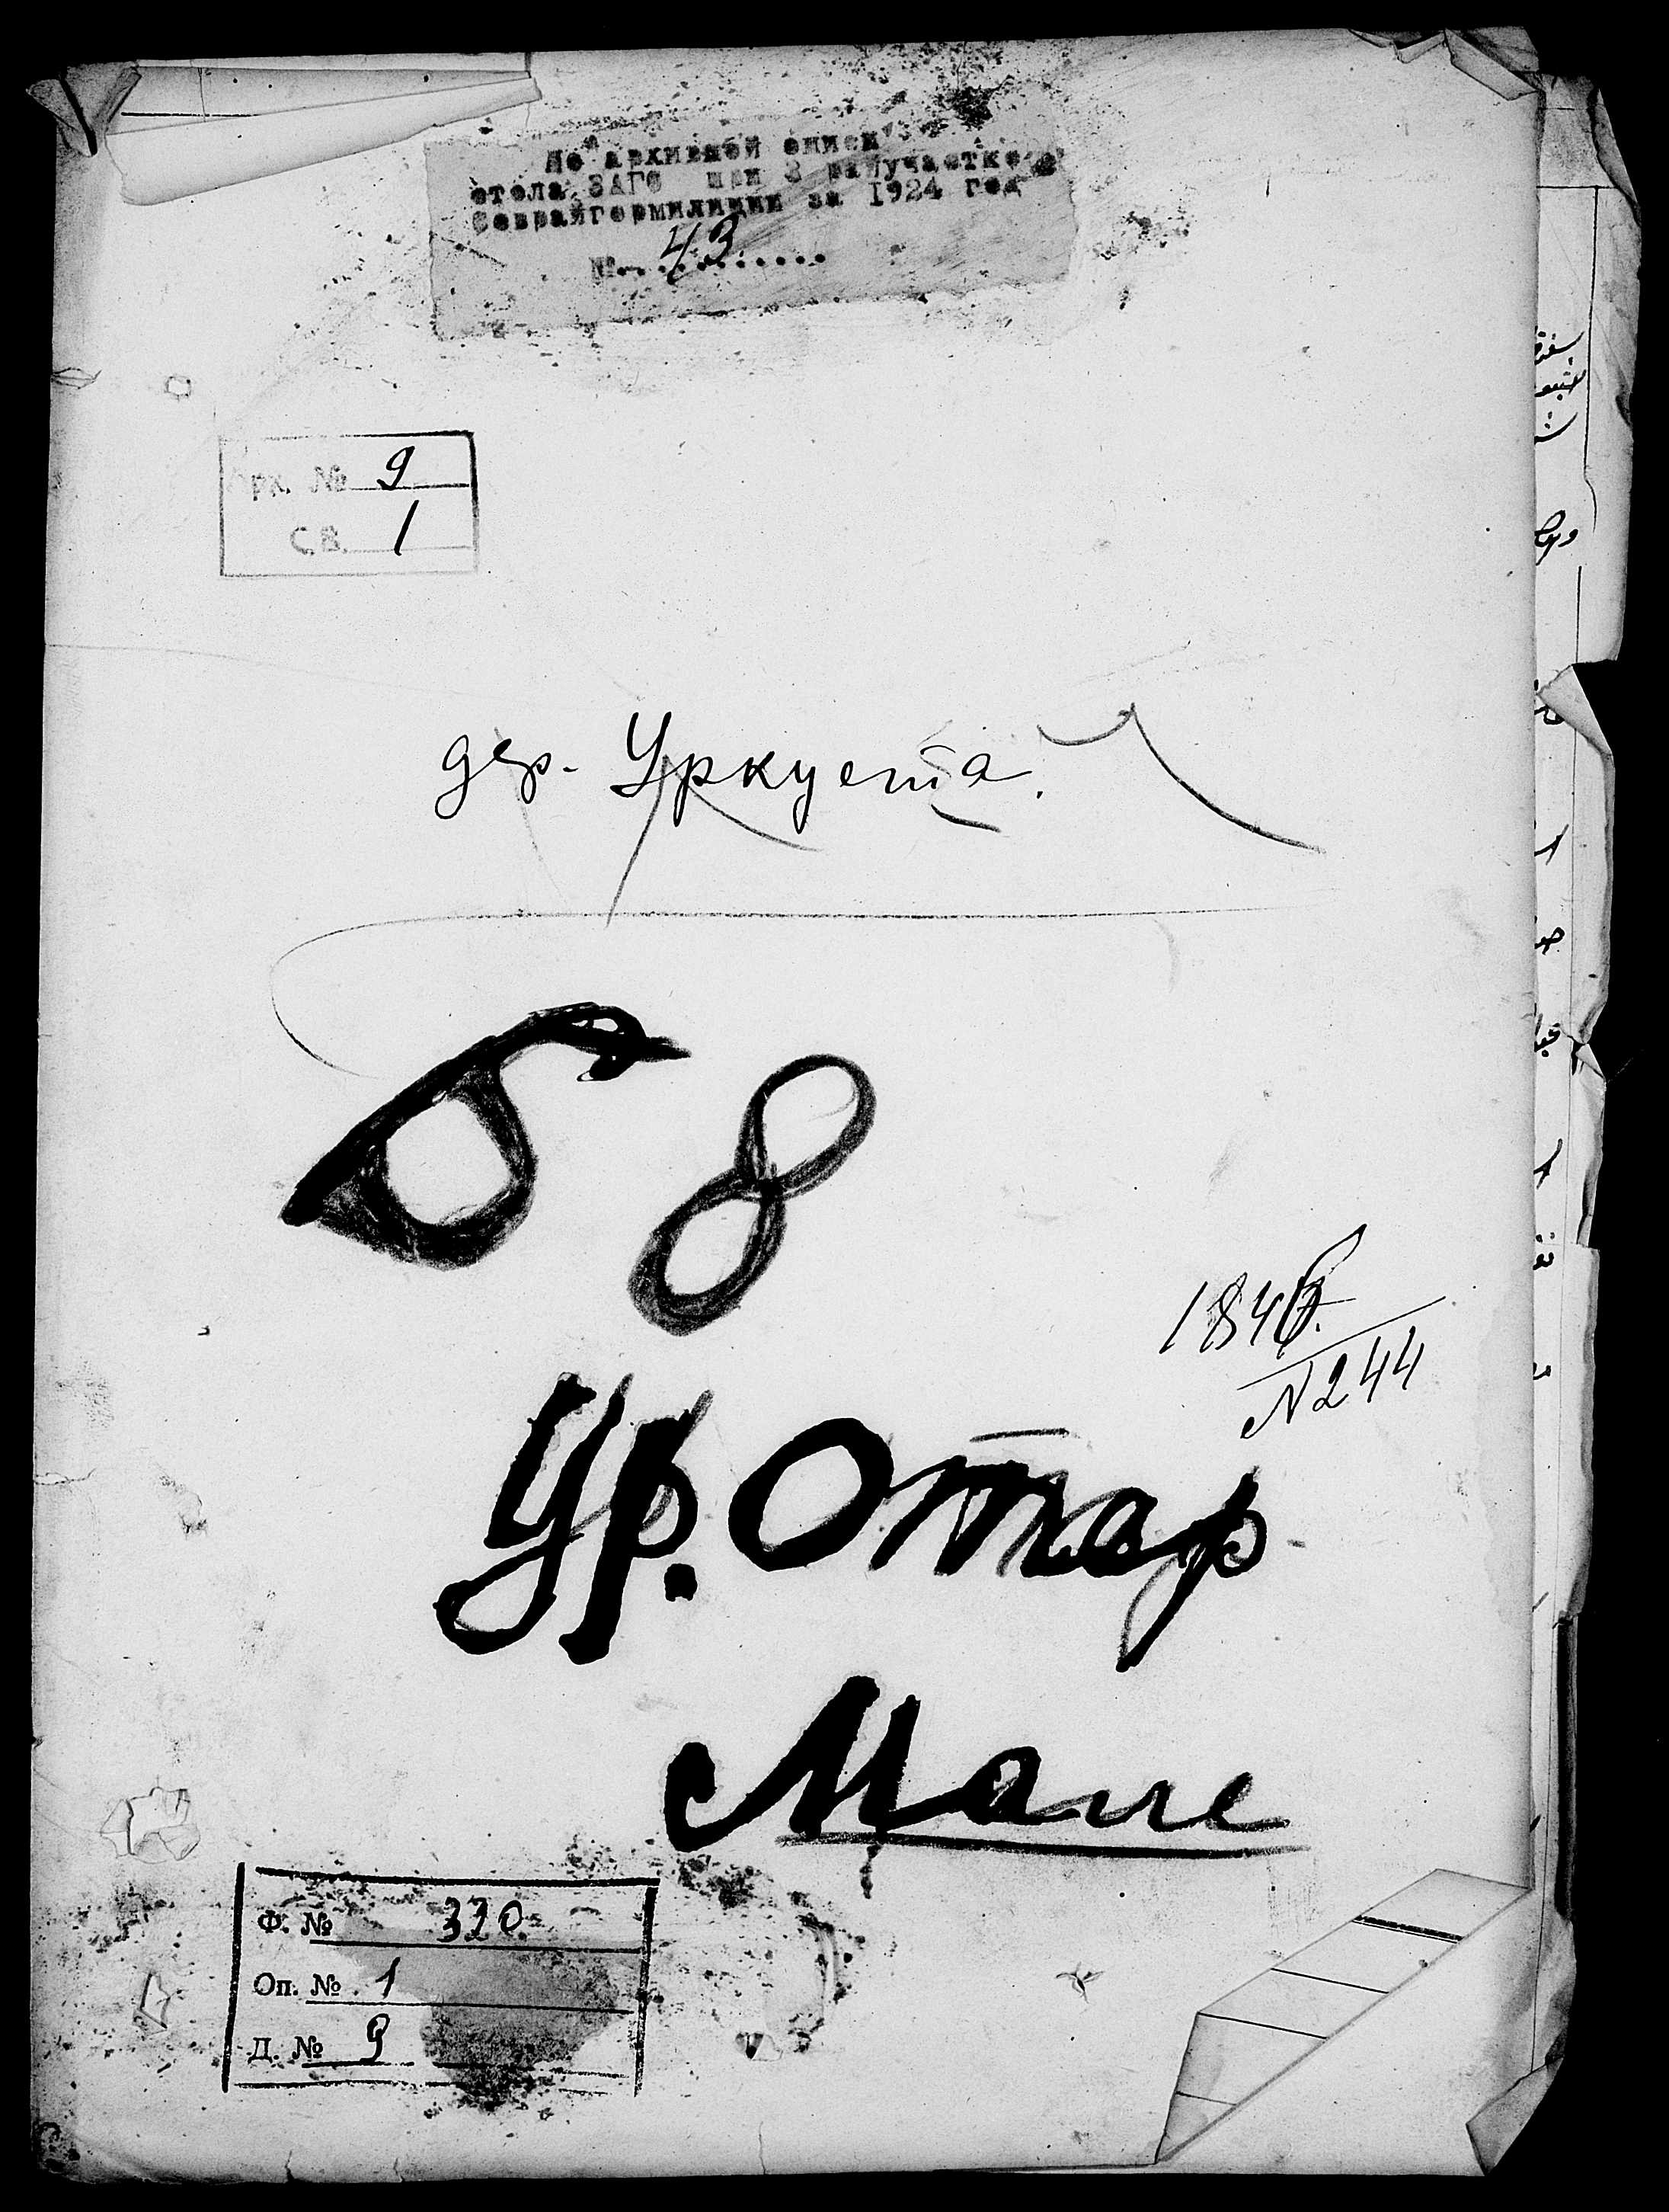 По архивной описи
стола ЗАГС при 3 райучастке
Севрайгормилиции за 1924 год
№ 43
Арк. № 9
С.В. 1
дер. Уркуста.
68
184
N 244
Ур. Отар
Мале
Ф. № 330.
Оп. № 1
Д. № 9